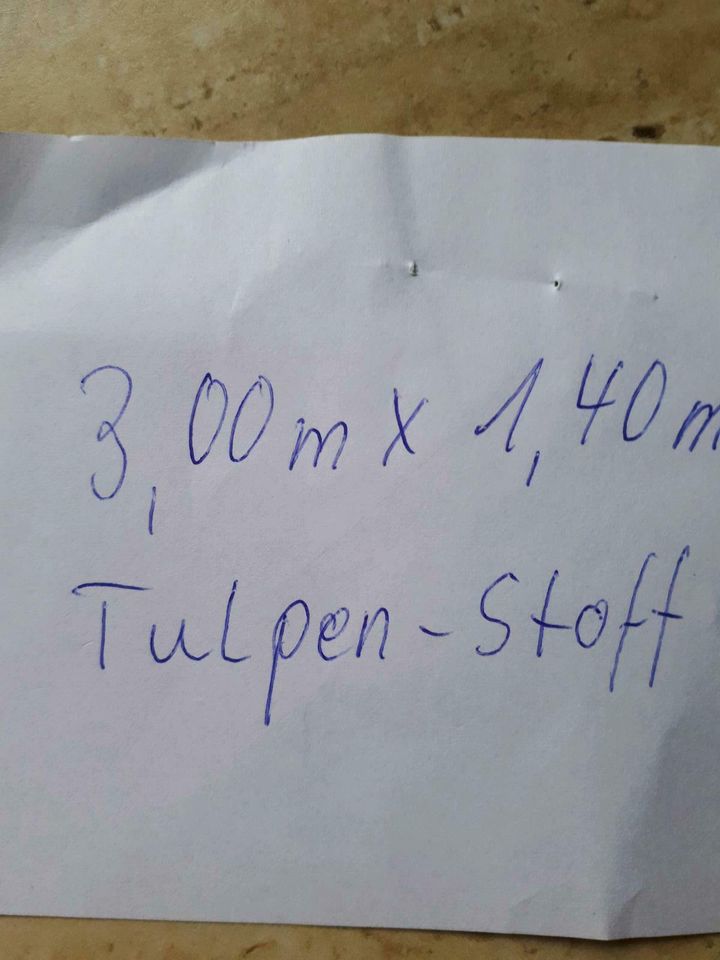 3,00m x 1,40m
Tulpen-Stoff